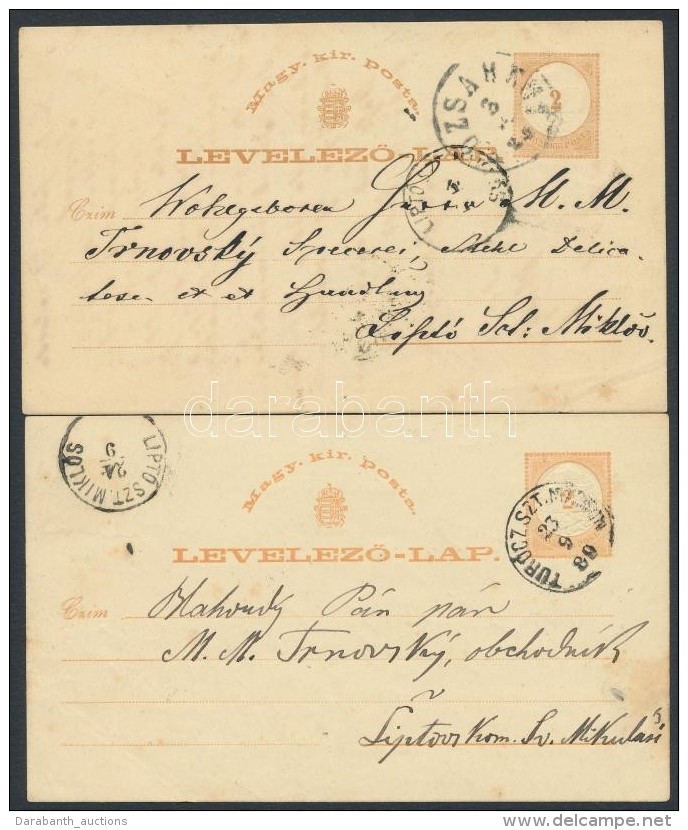 Magy. kir. Posta.
LEVELEZŐ-LAP.
2
Czim Wohlgeboren Herrn M. M.
Trnovský Specerei,
et et Handlung
Liptó Sct. Miklós.
darabanth
LIPTÓ SZT. MIKLÓS
24
9
Magy. kir. Posta.
LEVELEZŐ-LAP.
2
TURÓCZ. SZT. MÁRTON
23
9
Czim Blahorodý Pán pán
M. M. Trnovský, obchodník
Liptovskom. Sv. Mikuláši
Darabanth_auctions
www.delcampe.net